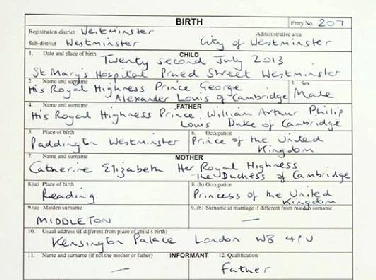 BIRTH Entry No. 207
Registration district Westminster Administrative area
Sub-district Westminster City of Westminster
1. CHILD
Twenty second July 2013
St Mary's Hospital Praed Street Westminster
2. Name and surname His Royal Highness Prince George
Alexander Louis of Cambridge Male
4. Name and surname FATHER
His Royal Highness Prince William Arthur Philip
Louis Duke of Cambridge
5. Place of birth 6. Occupation
Paddington Westminster Prince of the United
Kingdom
7. Name and surname MOTHER
Catherine Elizabeth Her Royal Highness
The Duchess of Cambridge
8.(a) Place of birth 8.(b) Occupation
Reading Princess of the United
Kingdom
9.(a) Maiden surname 9.(b) Surname at marriage if different from maiden surname
MIDDLETON —
10. Usual address (if different from place of child's birth)
Kensington Palace London W8 4PU
11. Name and surname (if not the mother or father) INFORMANT 12. Qualification
— Father